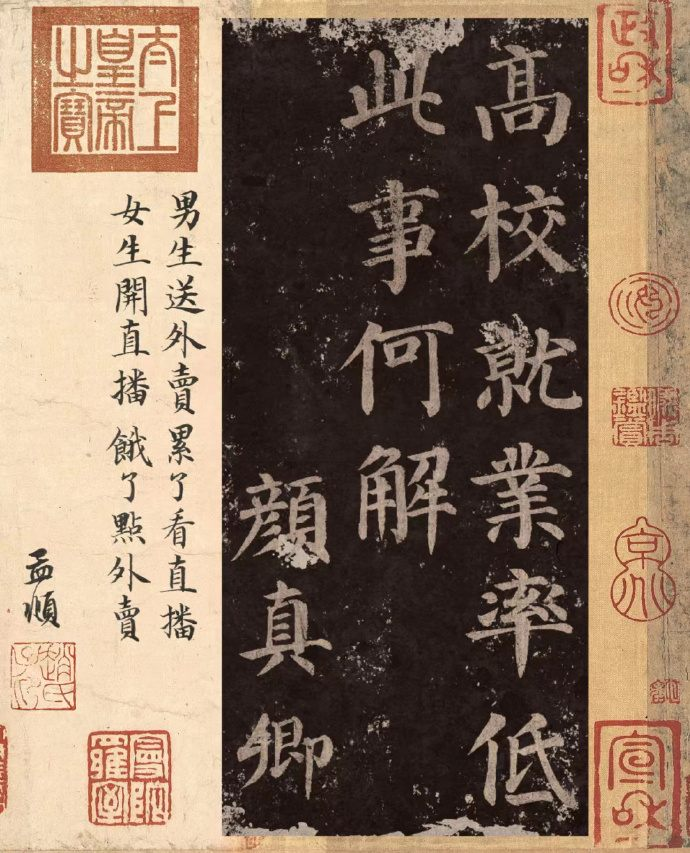 高校就業率低
此事何解
顏真卿
男生送外賣 累了看直播
女生開直播 餓了點外賣
孟順
太上皇帝之寶